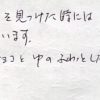 を見つけた時には
います。
ョコとゆのふわっとした